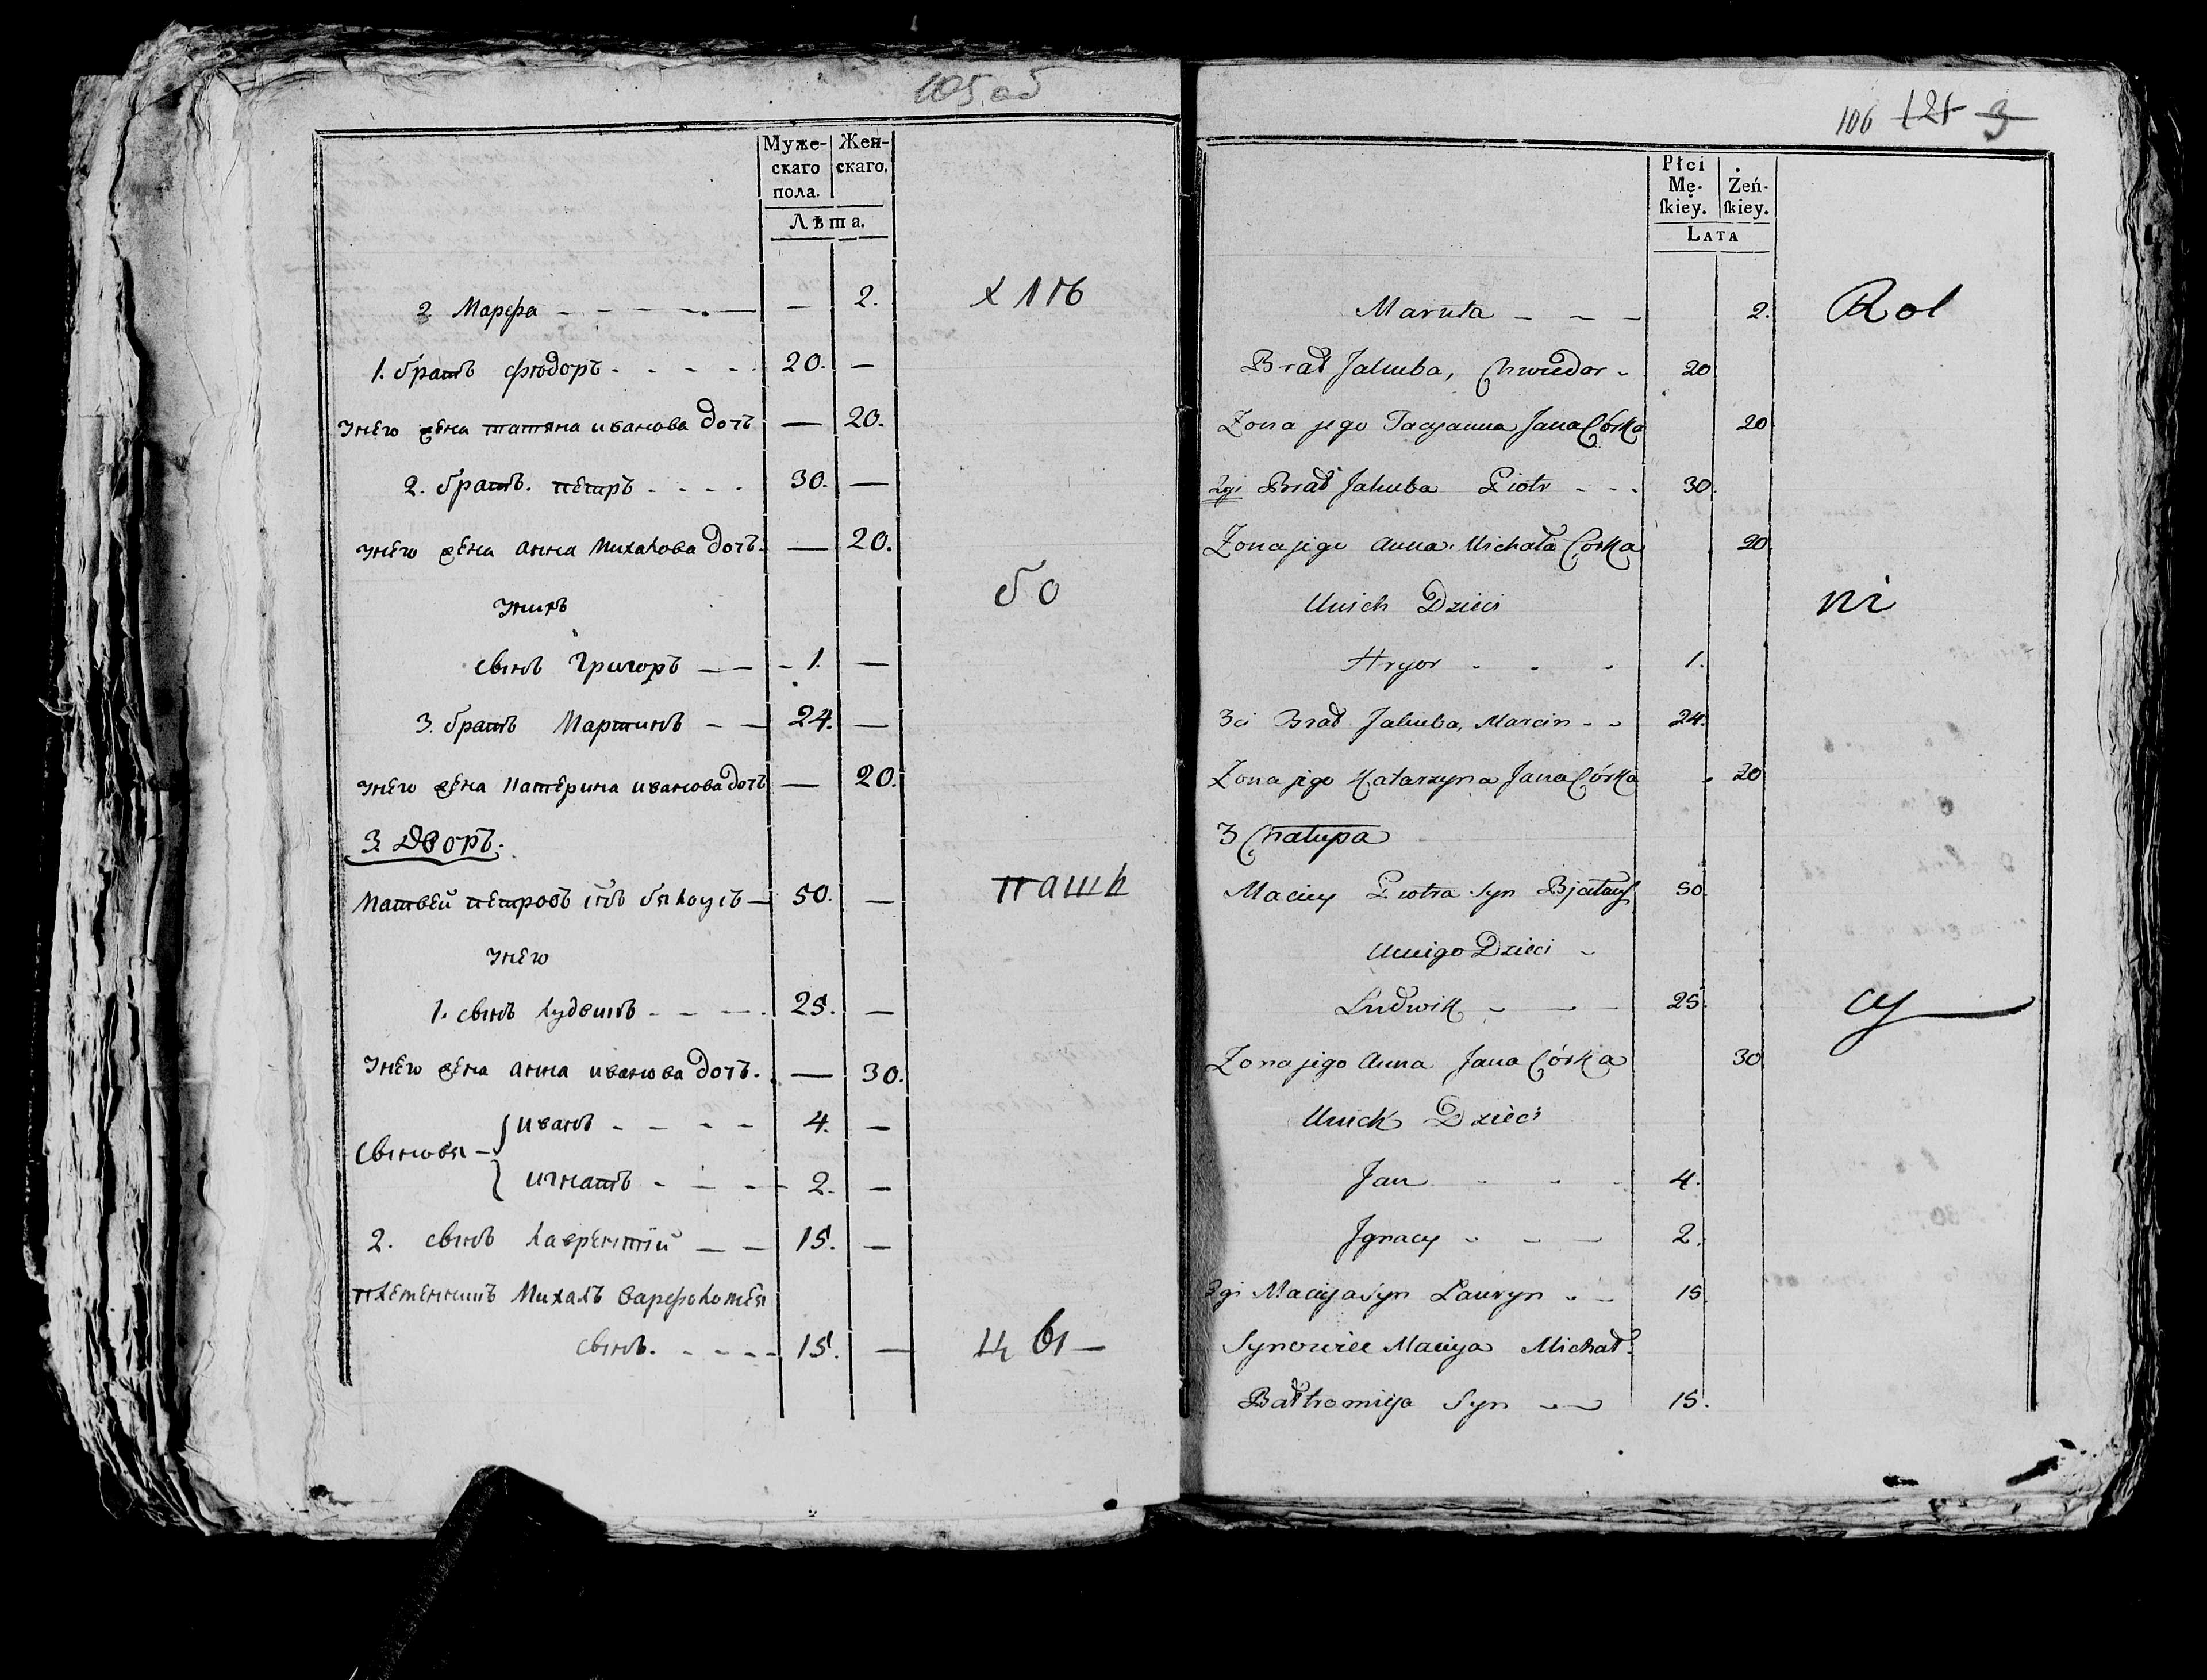 105 об
Муже-
скаго
пола.
Жен-
скаго.
Лѣта.
2 Марфа — 2. хлѣ
1. братъ фѣдоръ 20. —
унего жена татяна иванова дочь — 20.
2. братъ. петръ 30. —
унего жена анна михалова дочь. — 20.
унихъ бо
сынъ григоръ 1. —
3. братъ Мартинъ 24. —
унего жена катерина иванова дочь — 20.
3 дворъ.
Матвей петровъ снъ бялоусъ 50. — паш
унего
1. сынъ лудвикъ 25. —
унего жена анна иванова дочь. — 30.
иванъ 4. —
сыновя
игнатъ 2. —
2. сынъ лаврентий 15. —
племенникъ Михалъ варфоломея
сынъ. 15. — цы
106 121 3
Płci
Mę-
ſkiey.
Żeń-
ſkiey.
LATA
Maruta 2. Rol
Brat Jakuba, Chwiedor 20
Zona jego Tacyanna Jana Córka 20
2gi Brat Jakuba Piotr 30.
Zona jego Anna Michała Corka 20.
Unich Dzieci ni
Hryor 1.
3ci Brat Jakuba, Marcin 24.
Zona jego Katarzyna Jana Córka 20
3 Chałupa
Maciey Piotra Syn Bjałaus 50.
Uniego Dzieci
Ludwik 25. cy
Zona jego Anna Jana Córka 30
Unich Dzieci
Jan 4.
Jgnacy 2.
2gi Macieja Syn Lauryn 15.
Synowiec Macieja Michał
Bałtromieja Syn 15.